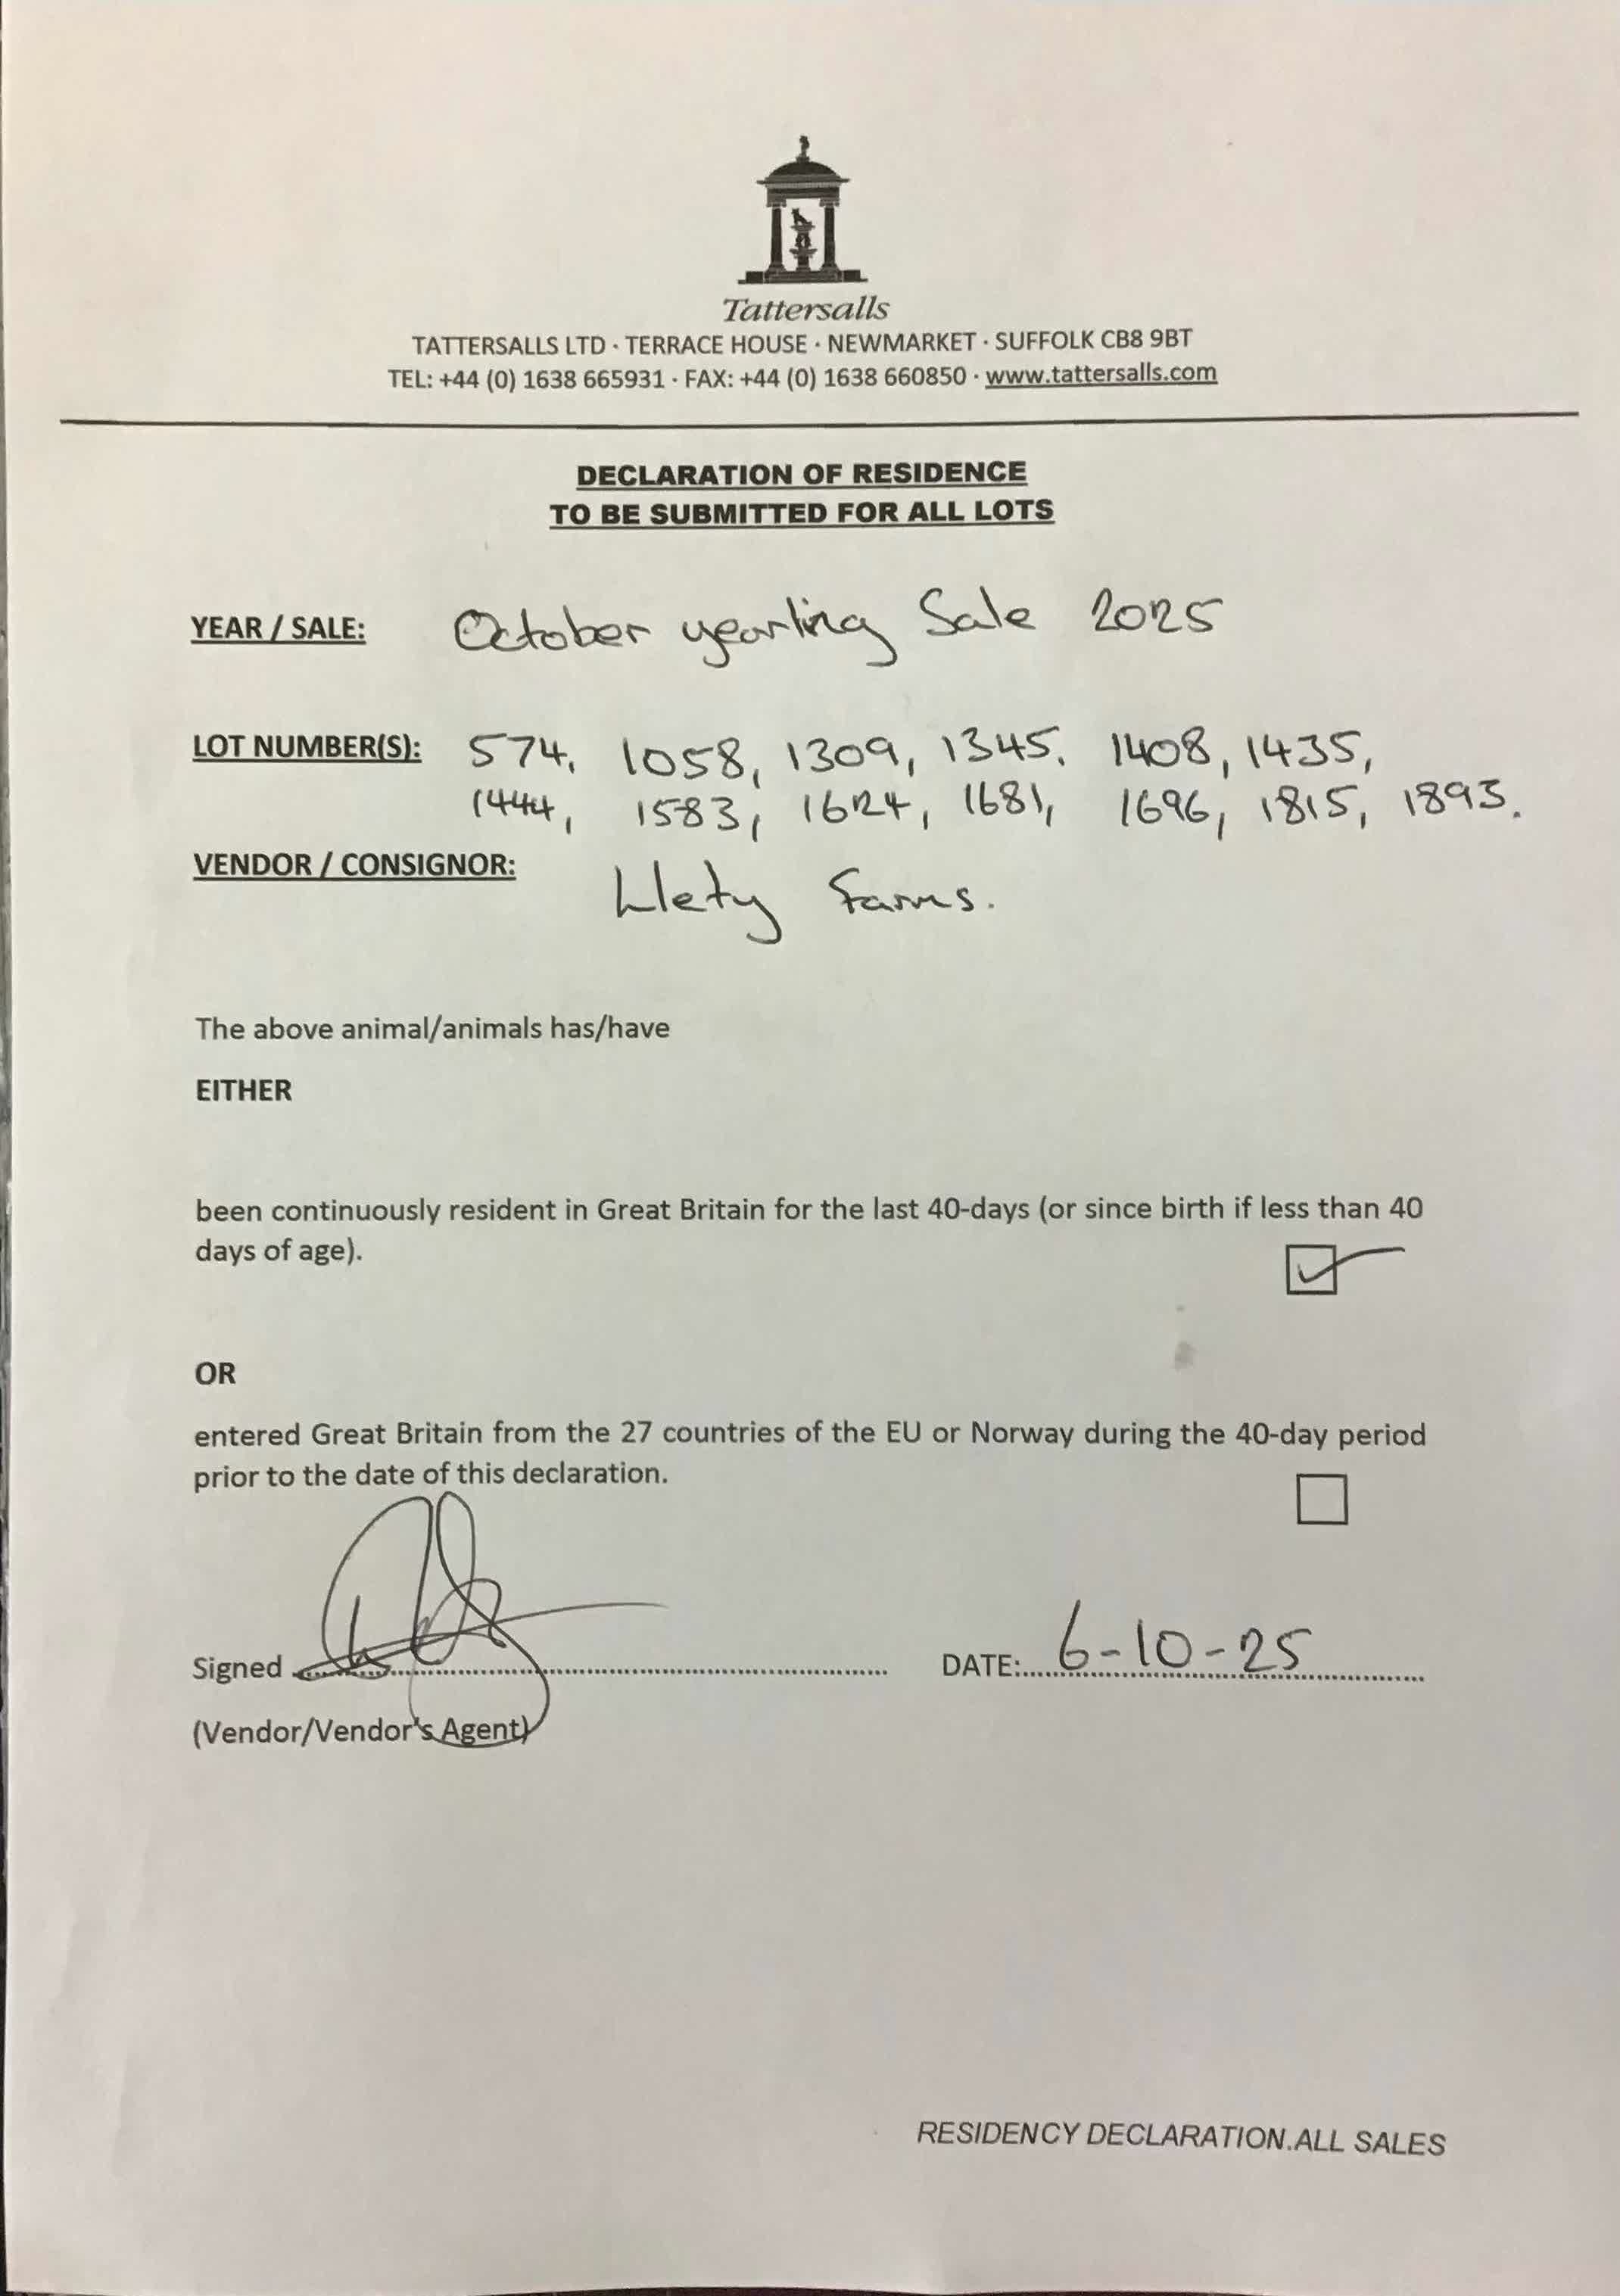 Tattersalls
TATTERSALLS LTD · TERRACE HOUSE · NEWMARKET · SUFFOLK CB8 9BT
TEL: +44 (0) 1638 665931 · FAX: +44 (0) 1638 660850 · www.tattersalls.com
DECLARATION OF RESIDENCE
TO BE SUBMITTED FOR ALL LOTS
YEAR / SALE: October yearling Sale 2025
LOT NUMBER(S): 574, 1058, 1309, 1345, 1408, 1435,
1444, 1583, 1624, 1681, 1696, 1815, 1893.
VENDOR / CONSIGNOR: Llety Farms.
The above animal/animals has/have
EITHER
been continuously resident in Great Britain for the last 40-days (or since birth if less than 40
days of age).
OR
entered Great Britain from the 27 countries of the EU or Norway during the 40-day period
prior to the date of this declaration.
Signed DATE: 6-10-25
(Vendor/Vendor's Agent)
RESIDENCY DECLARATION.ALL SALES